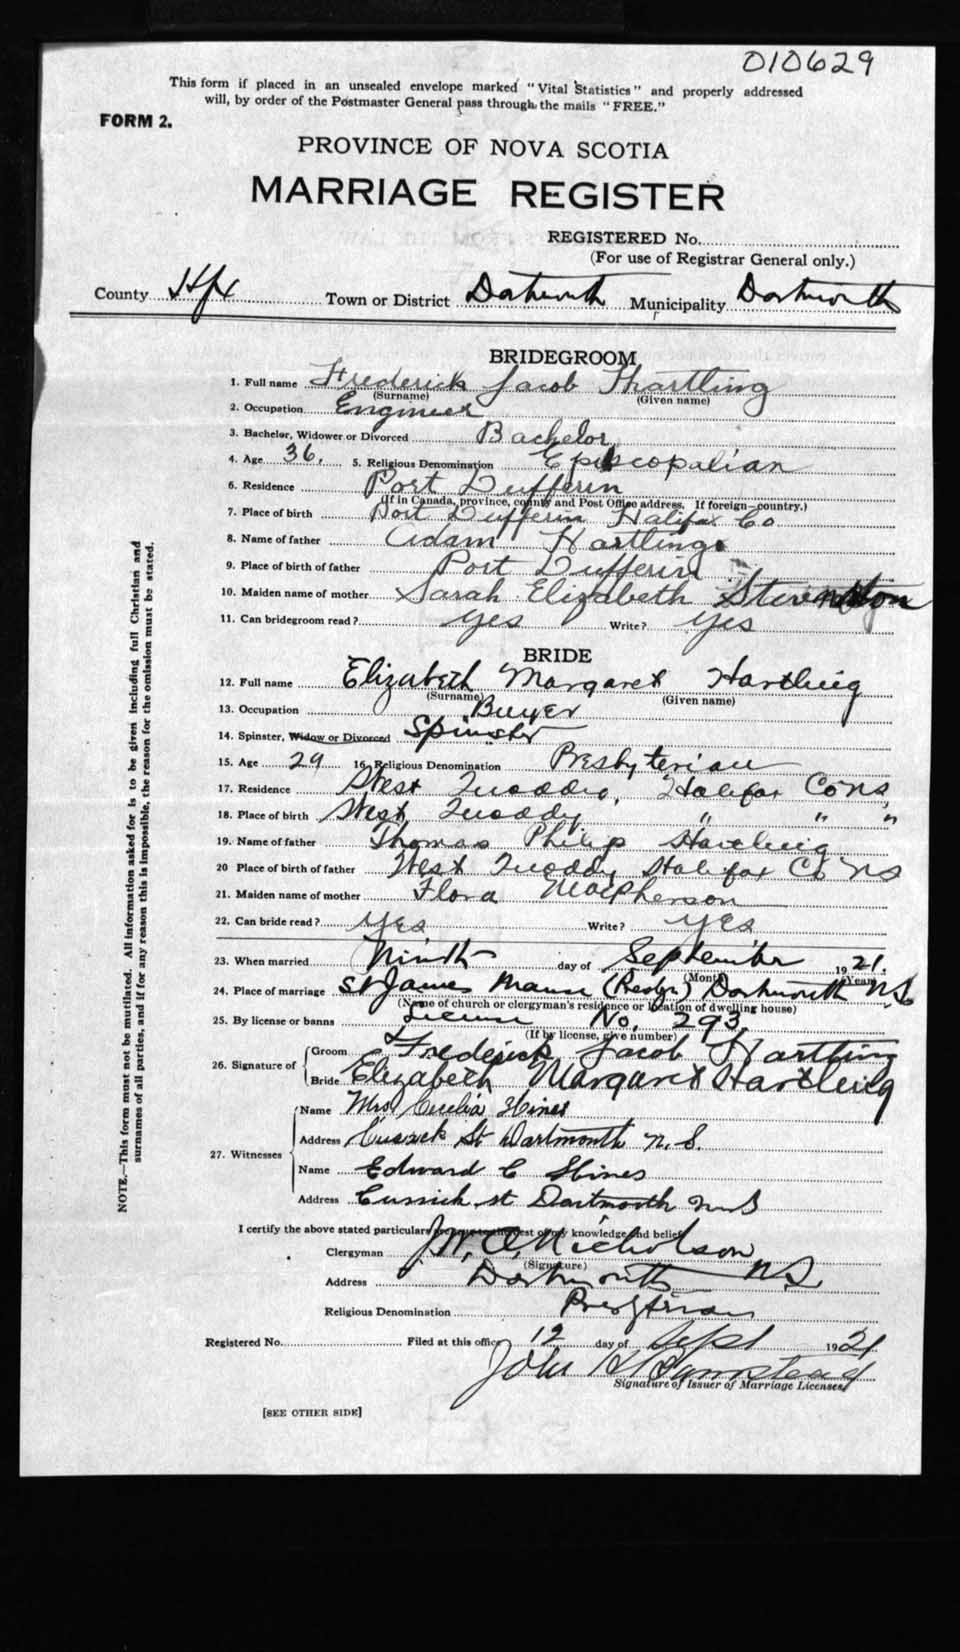 010629
This form if placed in an unsealed envelope marked "Vital Statistics" and properly addressed
will, by order of the Postmaster General pass through the mails "FREE."
FORM 2.
PROVINCE OF NOVA SCOTIA
MARRIAGE REGISTER
REGISTERED No.
(For use of Registrar General only.)
County Hfx Town or District Dartmouth Municipality Dartmouth
BRIDEGROOM
1. Full name Frederick Jacob Hartling
(Surname) (Given name)
2. Occupation Engineer
3. Bachelor, Widower or Divorced Bachelor
4. Age 36. 5. Religious Denomination Episcopalian
6. Residence Port Dufferin
(If in Canada, province, county and Post Office address. If foreign—country.)
7. Place of birth Port Dufferin Halifax Co
8. Name of father Adam Hartling
9. Place of birth of father Port Dufferin
10. Maiden name of mother Sarah Elizabeth
11. Can bridegroom read? Yes Write? Yes
BRIDE
12. Full name Elizabeth Margaret Hartling
(Surname) (Given name)
13. Occupation Buyer
14. Spinster, Widow or Divorced Spinster
15. Age 29 16. Religious Denomination Presbyterian
17. Residence West Quoddy, Halifax Co NS,
18. Place of birth West Quoddy " " "
19. Name of father Thomas Philip Hartling
20 Place of birth of father West Quoddy Halifax Co NS
21. Maiden name of mother Flora MacPherson
22. Can bride read? Yes Write? Yes
23. When married Ninth day of September 1921.
(Month) (Year)
24. Place of marriage St James Manse (Presbyn) Dartmouth N.S.
(Name of church or clergyman's residence or location of dwelling house)
25. By license or banns License No. 293.
(If by license, give number)
26. Signature of Groom Frederick Jacob Hartling
Bride Elizabeth Margaret Hartling
27. Witnesses
Name Mrs Cecelia Hines
Address St Dartmouth N.S.
Name Edward C Hines
Address st Dartmouth N S
I certify the above stated particulars are true to the best of my knowledge and belief.
Clergyman J. W. A. Nicholson
(Signature)
Address Dartmouth N.S.
Religious Denomination Presbyterian
Registered No. Filed at this office 12 day of Sept 1921
John
Signature of Issuer of Marriage Licenses
[SEE OTHER SIDE]
NOTE.—This form must not be mutilated. All information asked for is to be given including full Christian and
surnames of all parties, and if for any reason this is impossible, the reason for the omission must be stated.